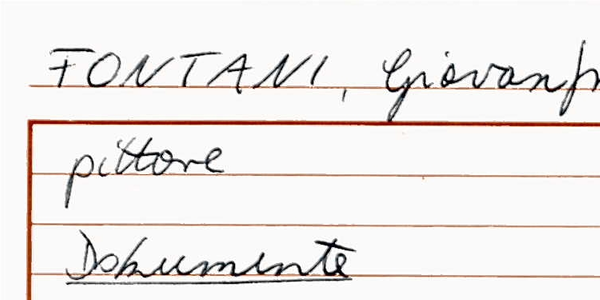 FONTANI, Giovanf
pittore
Dokumente